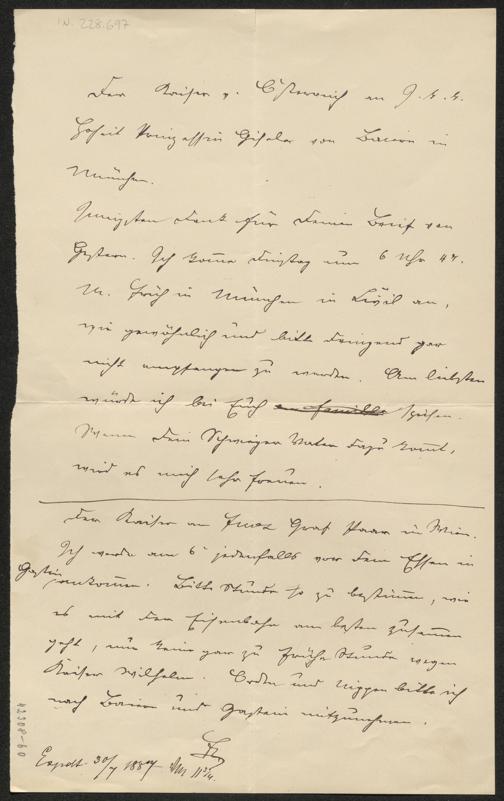 IN. 228.697
Der Kaiser v. Österreich an I. k. k.
Hoheit Prinzessin Gisela von Baiern in
München.
Innigsten Dank für Deinen Brief von
Gestern. Ich komme Dinstag um 6 Uhr 47.
M. früh in München in Civil an,
wie gewöhnlich und bitte dringend gar
nicht empfangen zu werden. Am liebsten
würde ich bei Euch en famille speisen.
Wenn Dein Schwieger Vater dazu kommt,
wird es mich sehr freuen.
Der Kaiser an Graf Paar in Wien.
Ich werde am 6 jedenfalls vor dem Essen in
Gastein ankommen. Bitte Stunde so zu bestimmen, wie
es mit der Eisenbahn am besten zusammen
geht, nur keine gar zu frühe Stunde wegen
Kaiser Wilhelm. Orden und Nippen bitte ich
nach Baiern und Gastein mitzunehmen.
Expedt. 30/7 1887 Um 11 3/4.
42308-60